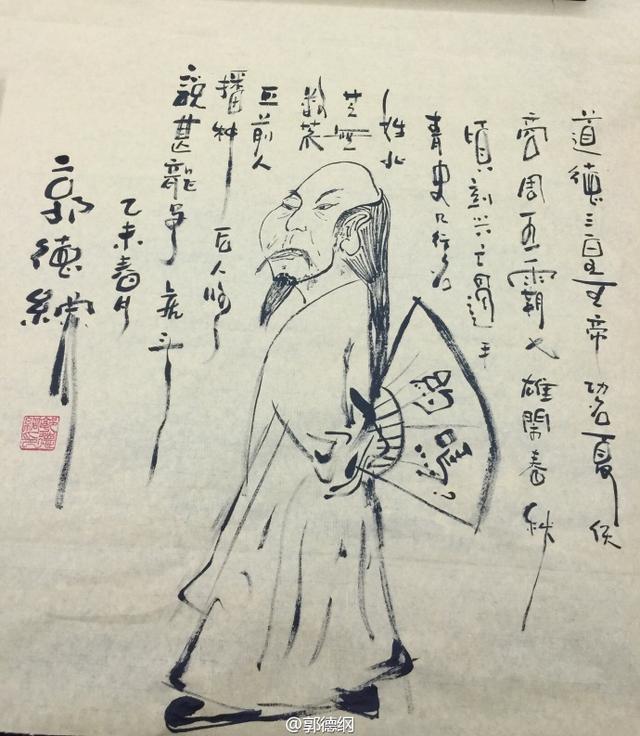 道德三皇五帝 功名夏侯
商周五霸七雄閙春秋
頃刻兴亡過手
青史几行名
姓北
芒無
数荒
丘前人
播种 后人收
說甚龍争虎斗
乙未春月
郭德纲
@郭德纲